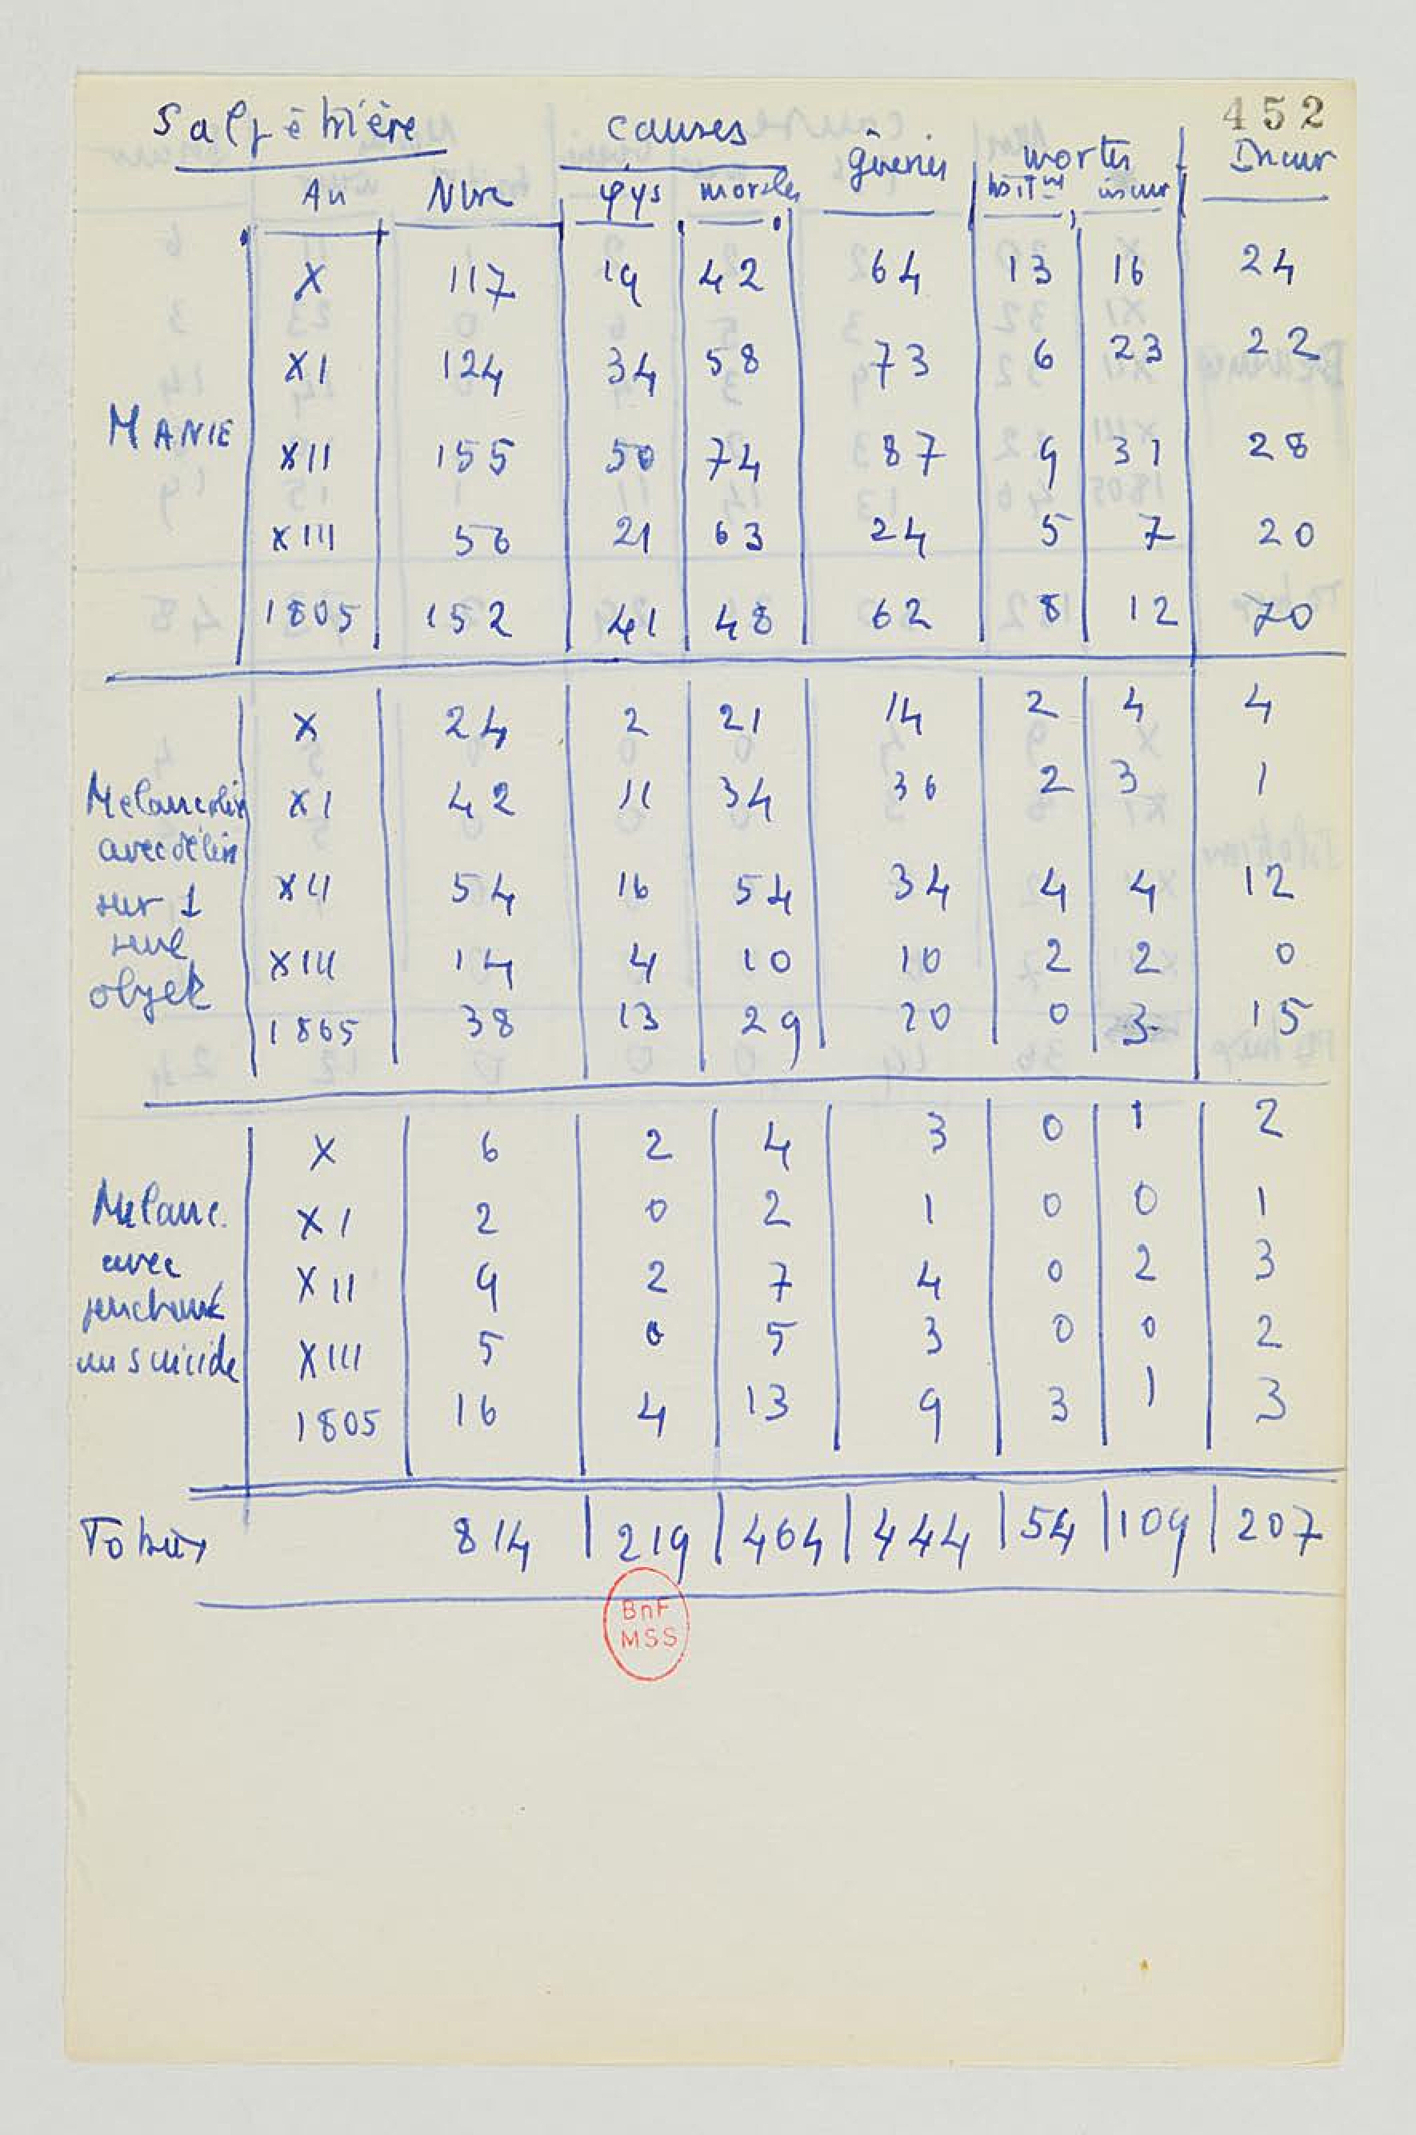 452
Salpêtrière causes guéries mortes Incur
An Nbre phys morales trait<sup>mt</sup> incur
X 117 19 42 64 13 16 24
XI 124 34 58 73 6 23 22
MANIE
XII 155 50 74 87 9 31 28
XIII 56 21 63 24 5 7 20
1805 152 41 48 62 8 12 70
X 24 2 21 14 2 4 4
Melancolie XI 42 11 34 36 2 3 1
avec délire
sur 1 XII 54 16 54 34 4 4 12
seul XIII 14 4 10 10 2 2 0
objet
1805 38 13 29 20 0 3 15
X 6 2 4 3 0 1 2
Melanc. XI 2 0 2 1 0 0 1
avec XII 9 2 7 4 0 2 3
penchant
au suicide XIII 5 0 5 3 0 0 2
1805 16 4 13 9 3 1 3
Totaux 814 219 464 444 54 109 207
BnF
MSS